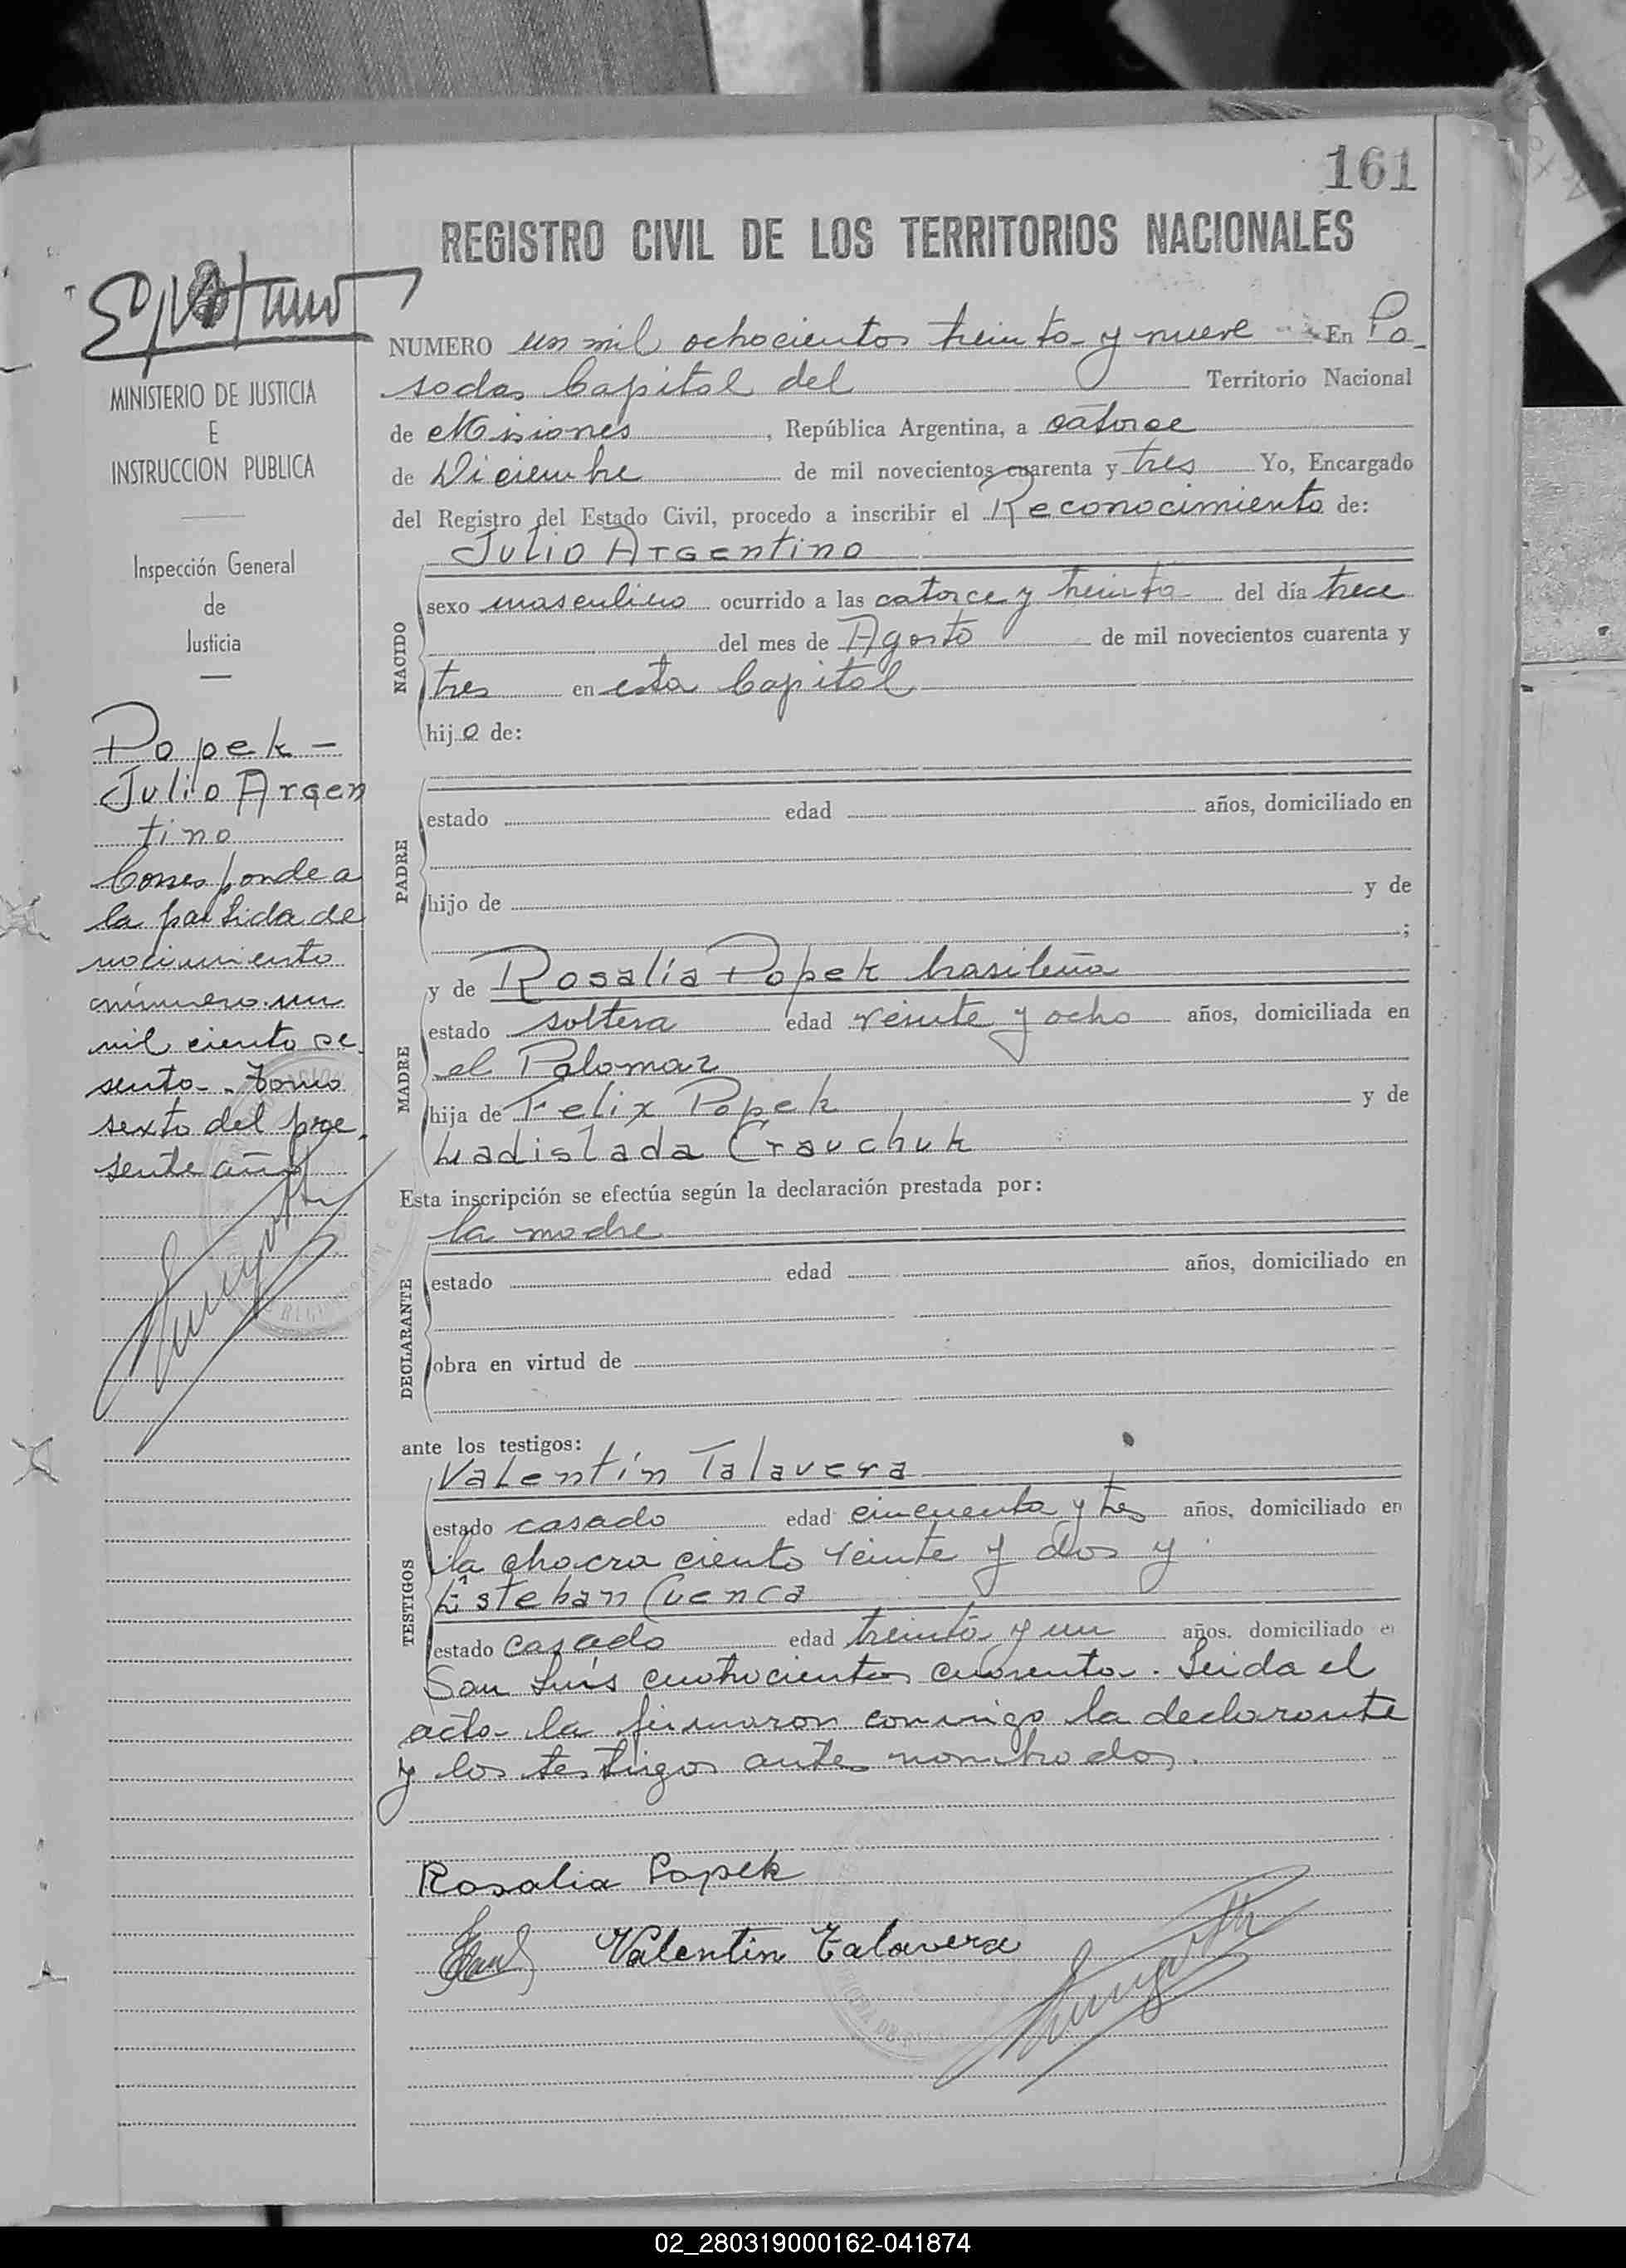 161
REGISTRO CIVIL DE LOS TERRITORIOS NACIONALES
MINISTERIO DE JUSTICIA
E
INSTRUCCION PUBLICA
Inspección General
de
Justicia
Popek -
Julio Argen
tino
Corresponde a
la partida de
nacimiento
número un
mil ciento se
senta - tomo
sexto del pre
sente año
NUMERO un mil ochocientos treinta y nueve En Po-
sadas Capital del Territorio Nacional
de Misiones, República Argentina, a catorce
de Diciembre de mil novecientos cuarenta y tres Yo, Encargado
del Registro del Estado Civil, procedo a inscribir el Reconocimiento de:
Julio Argentino
NACIDO
sexo masculino ocurrido a las catorce y treinta del día trece
del mes de Agosto de mil novecientos cuarenta y
tres en esta Capital
hijo de:
PADRE
estado edad años, domiciliado en
hijo de y de
;
y de Rosalía Popek brasileña
MADRE
estado soltera edad veinte y ocho años, domiciliada en
el Palomar
hija de Felix Popek y de
Ladislada Crauchuk
Esta inscripción se efectúa según la declaración prestada por:
la madre
DECLARANTE
estado edad años, domiciliado en
obra en virtud de
ante los testigos:
Valentín Talavera
TESTIGOS
estado casado edad cincuenta y tres años, domiciliado en
la chacra ciento veinte y dos y
Esteban Cuenca
estado casado edad treinta y un años. domiciliado e
San Luís cuatrocientos cuarenta. Leida el
acta la firmaron conmigo la declarante
y los testigos antes nombrados.
Rosalia Popek
Valentin Talavera
02_280319000162-041874